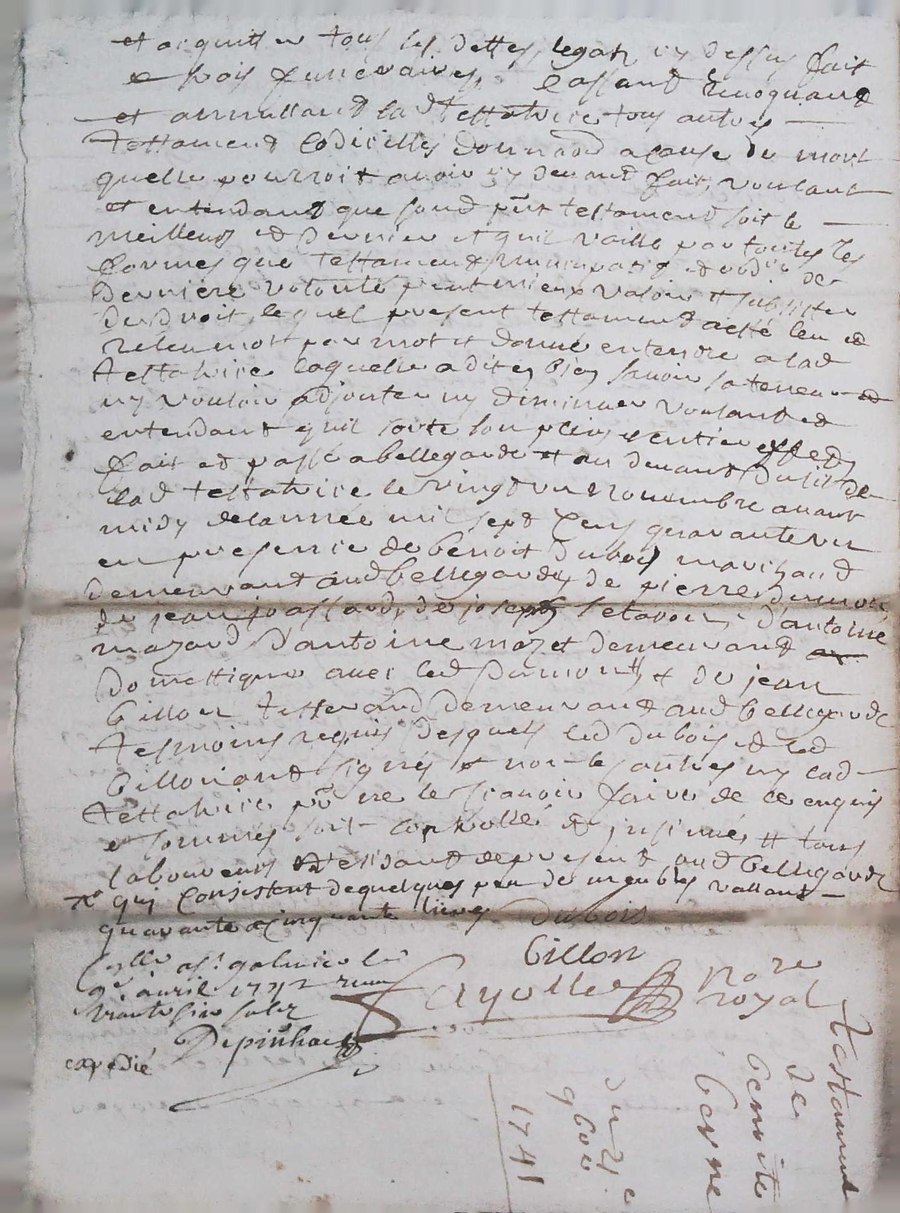 et acquitter tous les dettes, legats cy dessus fait
et frais funeraires, Cassant Revoquant
et annullant lad testatrice tous autres
testament Codicilles donnaõn a cause de mort
quelle pourroit avoir cy devant fait, voulant
et entendant que sond pñt testament soit le
meilleur et dernier et quil vaille par toutes les
formes que testament nuncupatif et de
derniere volonté peut mieux valoir et subsister
de droit, lequel present testament a esté leu et
releu mot par mot et donné entendre a lad
testatrice laquelle a dit en bien savoir la teneur et
ny vouloir adjouter ny diminuer voulant et
entendant quil sorte son plein et entier effet
fait et passé a bellegarde et au devant du lit de
lad testatrice le vingt un novembre avant
midy de lannée mil sept Cens quarante un
en presence de benoit dubois marchand
demeurant aud bellegarde, de pierre dumont
de jean joassard, de joseph d'antoine
mazard d'antoine mazet demeurant
domestique avec led dumont, et de jean
Gillon tisserand demeurant aud bellegarde
tesmoins requis desquels led dubois et led
Gillon ont signés et non les autres ny lad
testatrice pñ ne le scavoir faire de ce enquis
et sommés soit controllé et insinué # tous
laboureurs residant de present aud bellegarde
qui Consistent de quelques peu de meubles vallant
quarante a Cinquante livres
Dubois
Gillon
Fayolle No re royal
Collé a st galmier le
avril 1742 recu
trante six solz
Depinhac
expedié
testament
de
benoite
berne
du 21 e
9bre
1741